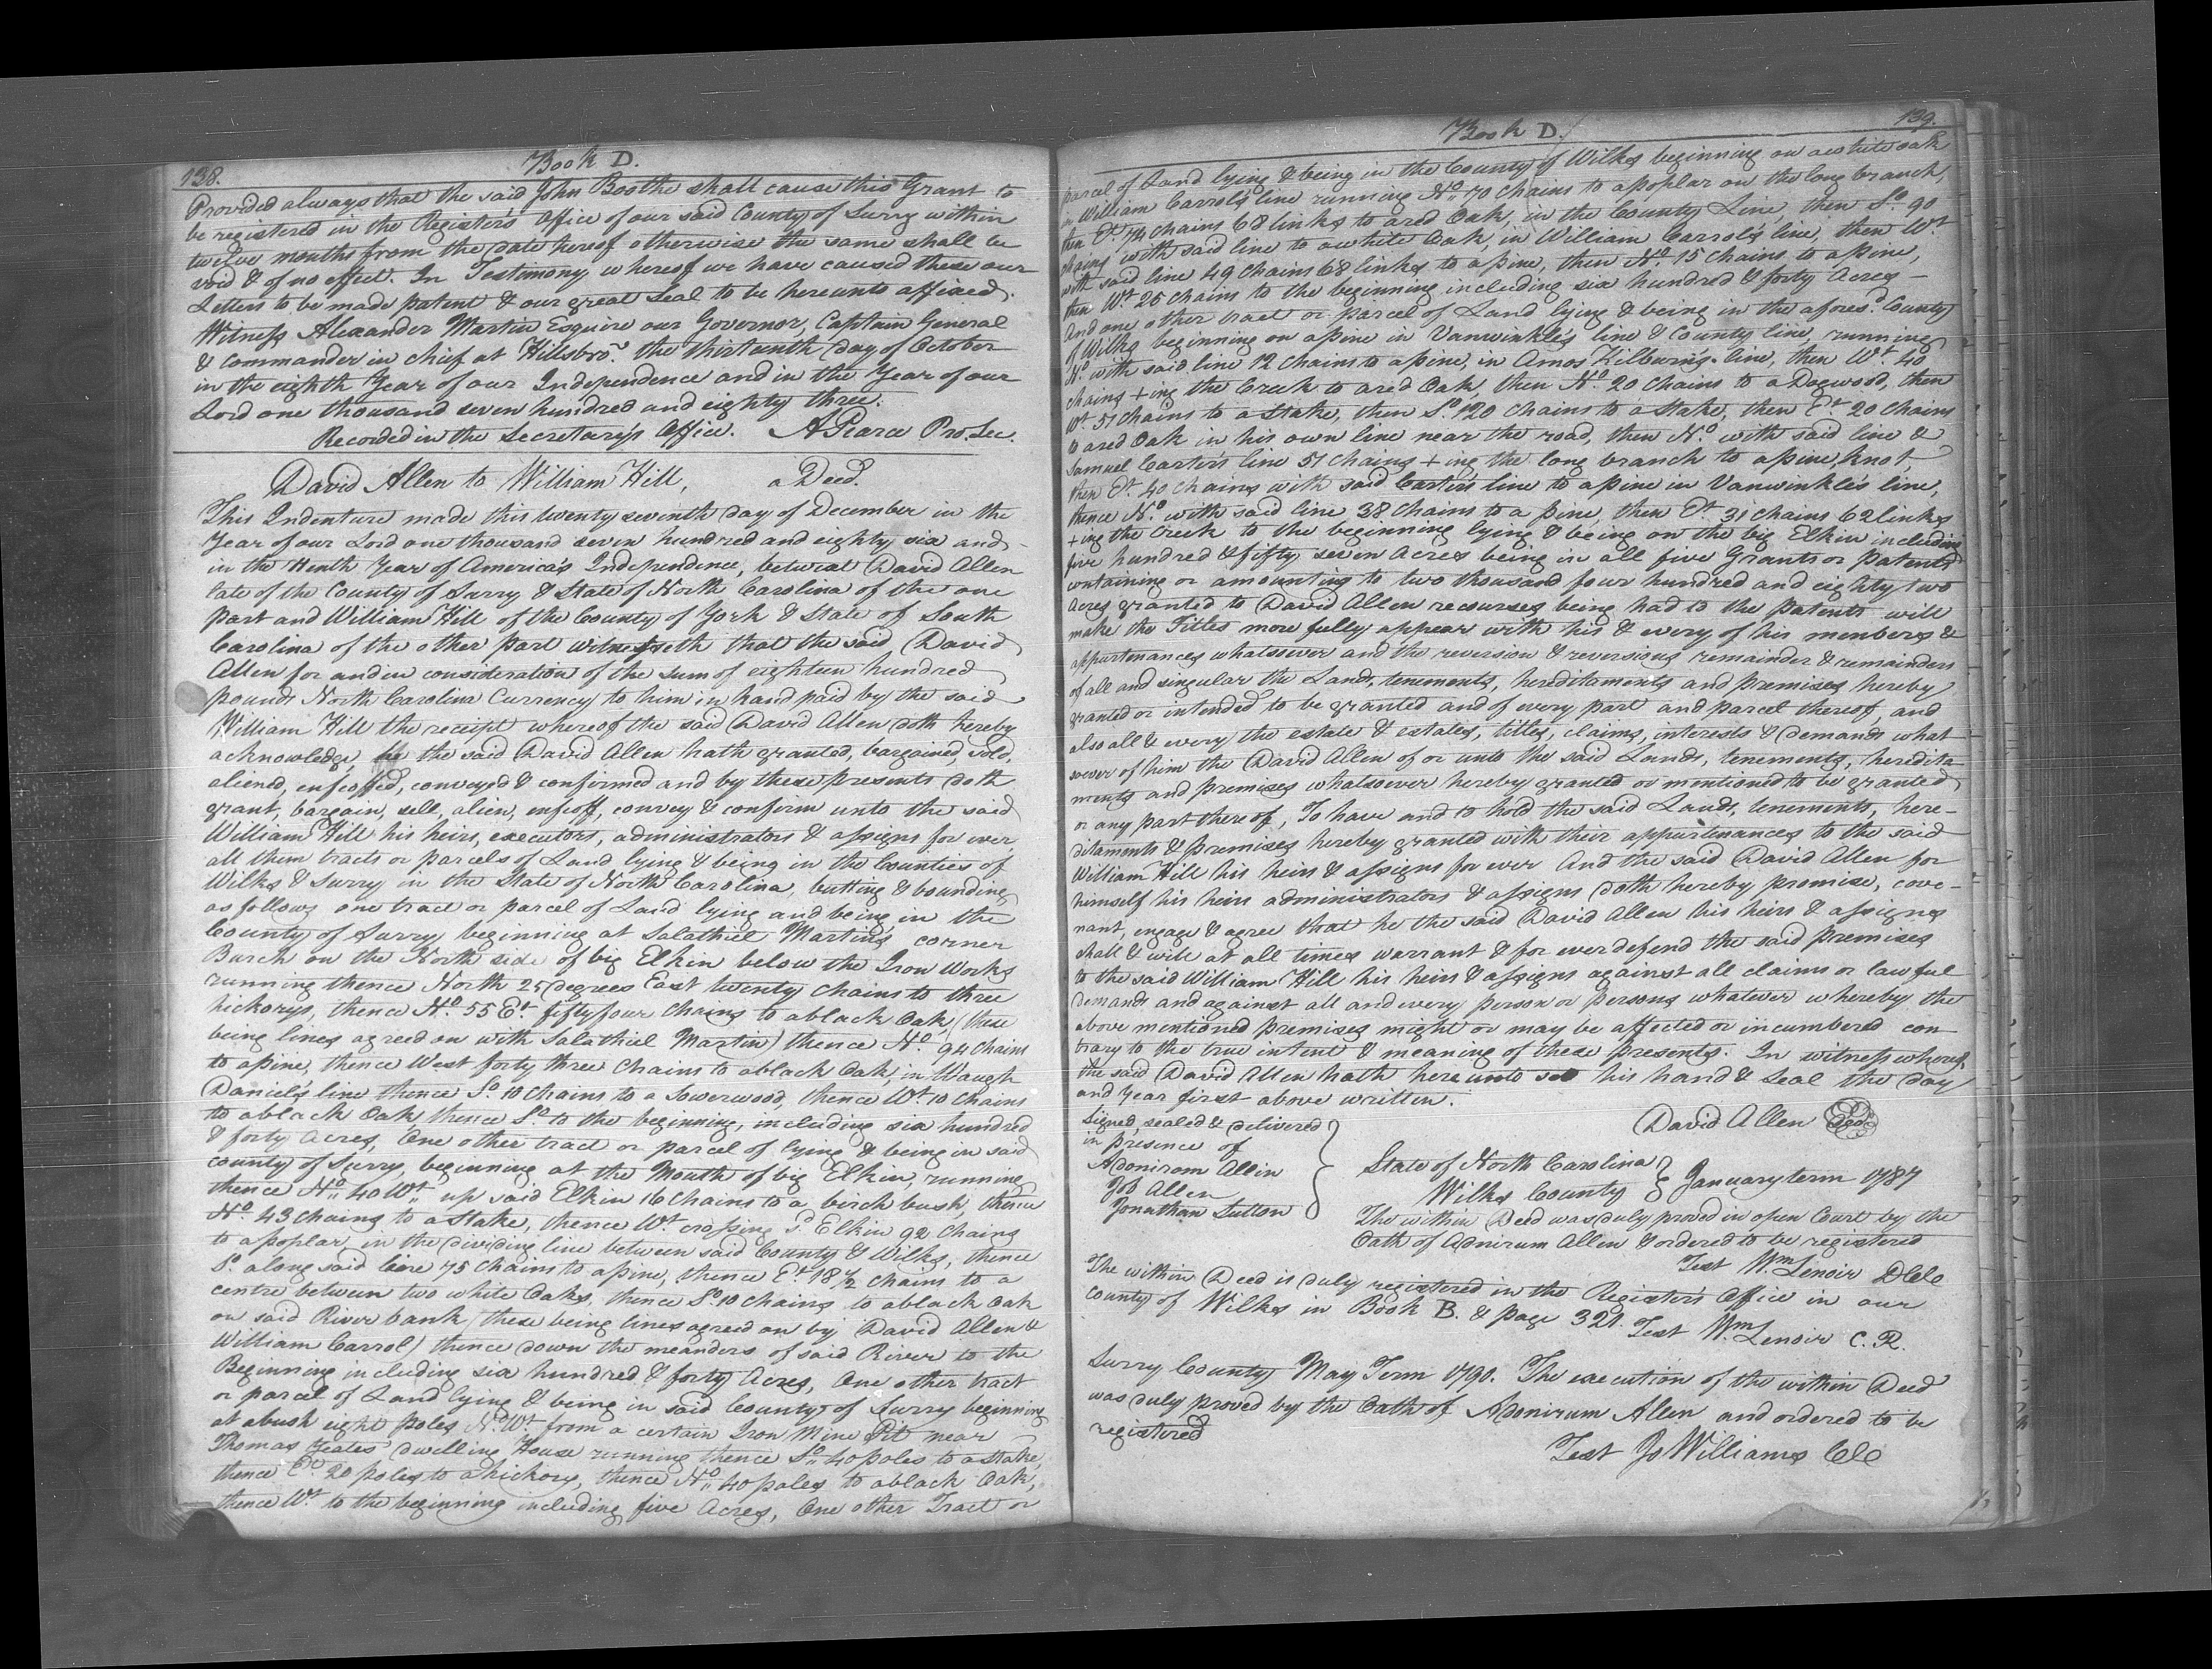 138.
Book D.
Provided always that the said John Boothe shall cause this Grant to
be registered in the Register's Office of our said County of Surry within
twelve months from the date hereof otherwise the same shall be
void & of no effect. In Testimony whereof we have caused these our
Letters to be made patent & our great Seal to be hereunto affixed.
Witness Alexander Martin Esquire our Governor, Captain General
& Commander in chief at Hillsbro.' the thirteenth day of October
in the eighth Year of our Independence and in the Year of our
Lord one thousand seven hundred and eighty three.
Recorded in the Secretary's Office. A Pearce Pro. Sec.
David Allen to William Hill, a Deed.
This Indenture made this twenty seventh day of December in the
Year of our Lord one thousand seven hundred and eighty six and
in the Year of America's Independence, betwixt David Allen
late of the County of Surry & State of North Carolina of the one
part and William Hill of the County of York & State of South
Carolina of the other part witnesseth that the said David
Allen for and in consideration of the sum of eighteen hundred
pounds North Carolina Currency to him in hand paid by the said
William Hill the receipt whereof the said David Allen doth hereby
acknowledge, the said David Allen hath granted, bargained, sold,
aliened, enfeoffed, conveyed & confirmed and by these presents doth
grant, bargain, sell, alien, enfeoff, convey & confirm unto the said
William Hill his heirs, executors, administrators & assigns for ever,
all them tracts or parcels of Land lying & being in the Counties of
Wilks & Surry in the State of North Carolina, butting & bounding
as follows one tract or parcel of Land lying and being in the
County of Surry beginning at Salathiel Martin's corner
Burch on the North side of big Elkin below the Iron Works
running thence North 25 degrees East twenty chains to three
hickorys, thence No. 55 Et. fifty four chains to a black Oak, (these
being lines agreed on with Salathiel Martin) thence No. 94 chains
to a pine, thence West forty three Chains to a black Oak, in Waugh
Daniel's line thence So. 10 chains to a Sowerwood, thence Wt. 10 chains
to a black Oak, thence So. to the beginning, including six hundred
& forty Acres, One other tract or parcel of lying & being in said
county of Surry, beginning at the Mouth of big Elkin, running
thence No. 40 Wt. up said Elkin 16 Chains to a birch bush, thence
No. 43 chains to a Stake, thence Wt. crossing sd. Elkin 92 Chains
to a poplar, in the dividing line between said County & Wilks, thence
So. along said line 75 chains to a pine, thence Et. 18 1/2 chains to a
centre between two white Oaks, thence So. 10 chains to a black Oak
on said River bank (these being lines agreed on by David Allen &
William Carrol) thence down the meanders of said River to the
Beginning including six hundred & forty Acres, One other tract
or parcel of Land lying & being in said County of Surry beginning
at a bush eight poles No. Wt. from a certain Iron Mine Pit near
Thomas Yeates' dwelling House running thence So. 40 poles to a stake,
thence Et. 20 poles to a hickory, thence No. 40 poles to a black Oak,
thence Wt. to the beginning including five Acres, One other Tract or
Book D.
139.
parcel of Land lying & being in the County of Wilks beginning on a white oak
in William Carrol's line running No. 70 Chains to a poplar on the long branch,
then Et. 74 chains 68 links to a red Oak, in the County Line, then So. 90
chains with said line to a white Oak, in William Carrol's line, then Wt.
with said line 49 Chains 68 links to a pine, then No. 15 chains to a pine,
then Wt. 25 chains to the beginning including six hundred & forty Acres
And one other tract or parcel of Land lying & being in the aforesd. County
of Wilks beginning on a pine in Vanwinkle's line & County line, running
No. with said line 12 chains to a pine, in Amos Kilburn's line, then Wt. 40
chains +ing the Creek to a red Oak, then No. 20 chains to a Dogwood, then
Wt. 51 chains to a Stake, then So. 120 chains to a Stake, then Et. 20 chains
to a red Oak in his own line near the road, then No. with said line &
Samuel Carter's line 51 Chains +ing the long branch to a pine knot,
then Et. 40 chains with said Carter's line to a pine in Vanwinkle's line,
thence No. with said line 38 Chains to a pine, then Et. 31 chains 62 links
+ing the Creek to the beginning lying & being on the big Elkin including
five hundred & fifty seven Acres being in all five Grants or Patents
containing or amounting to two thousand four hundred and eighty two
Acres granted to David Allen recourses being had to the patents will
make the Titles more fully appear with his & every of his members &
appurtenances whatsoever and the reversion & reversions remainder & remainders
of all and singular the Lands, tenements, hereditaments and premises hereby
granted or intended to be granted and of every part and parcel thereof, and
also all & every the estate & estates, titles, claims, interests & demands what
soever of him the David Allen of or unto the said Lands, tenements, heredita-
ments and premises whatsoever hereby granted or mentioned to be granted
or any part thereof, To have and to hold the said Lands, tenements, here-
ditaments & premises hereby granted with their appurtenances to the said
William Hill his heirs & assigns for ever And the said David Allen for
himself his heirs administrators & assigns doth hereby promise, cove-
nant, engage & agree that he the said David Allen his heirs & assigns
shall & will at all times warrant & for ever defend the said premises
to the said William Hill his heirs & assigns against all claims or lawful
demands and against all and every person or persons whatever whereby the
above mentioned premises might or may be affected or incumbered con
trary to the true intent & meaning of these presents. In witness whereof,
the said David Allen hath hereunto set his hand & Seal the day
and Year first above written.
David Allen Seal
Signed, sealed & delivered
in presence of
Adoniram Allin
Job Allen
Jonathan Sutton
State of North Carolina
Wilks County
January term 1787
The within Deed was duly proved in open Court by the
Oath of Adnirum Allen & ordered to be registered
Test Wm. Lenoir D Clc
The within Deed is duly registered in the Register's Office in our
County of Wilks in Book B. & page 321. Test Wm. Lenoir C. R.
Surry County May Term 1790. The execution of the within Deed
was duly proved by the Oath of Adonirum Allen and ordered to be
registered
Test Jo Williams Clc